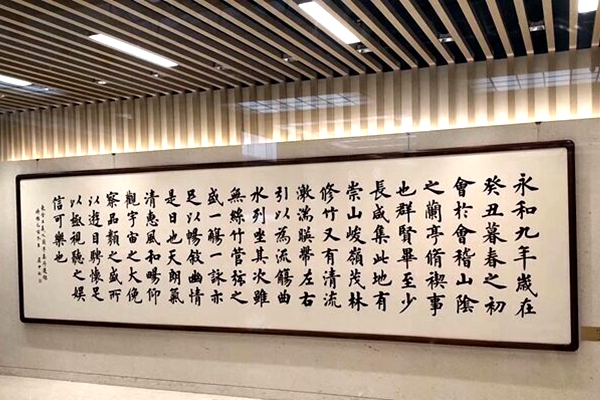 永和九年歲在
癸丑暮春之初
會於會稽山陰
之蘭亭脩禊事
也群賢畢至少
長咸集此地有
崇山峻嶺茂林
修竹又有清流
激湍暎帶左右
引以為流觴曲
水列坐其次雖
無絲竹管弦之
盛一觴一詠亦
足以暢敘幽情
是日也天朗氣
清惠風和暢仰
觀宇宙之大俛
察品類之盛所
以遊目騁懷足
以極視聽之娛
信可樂也